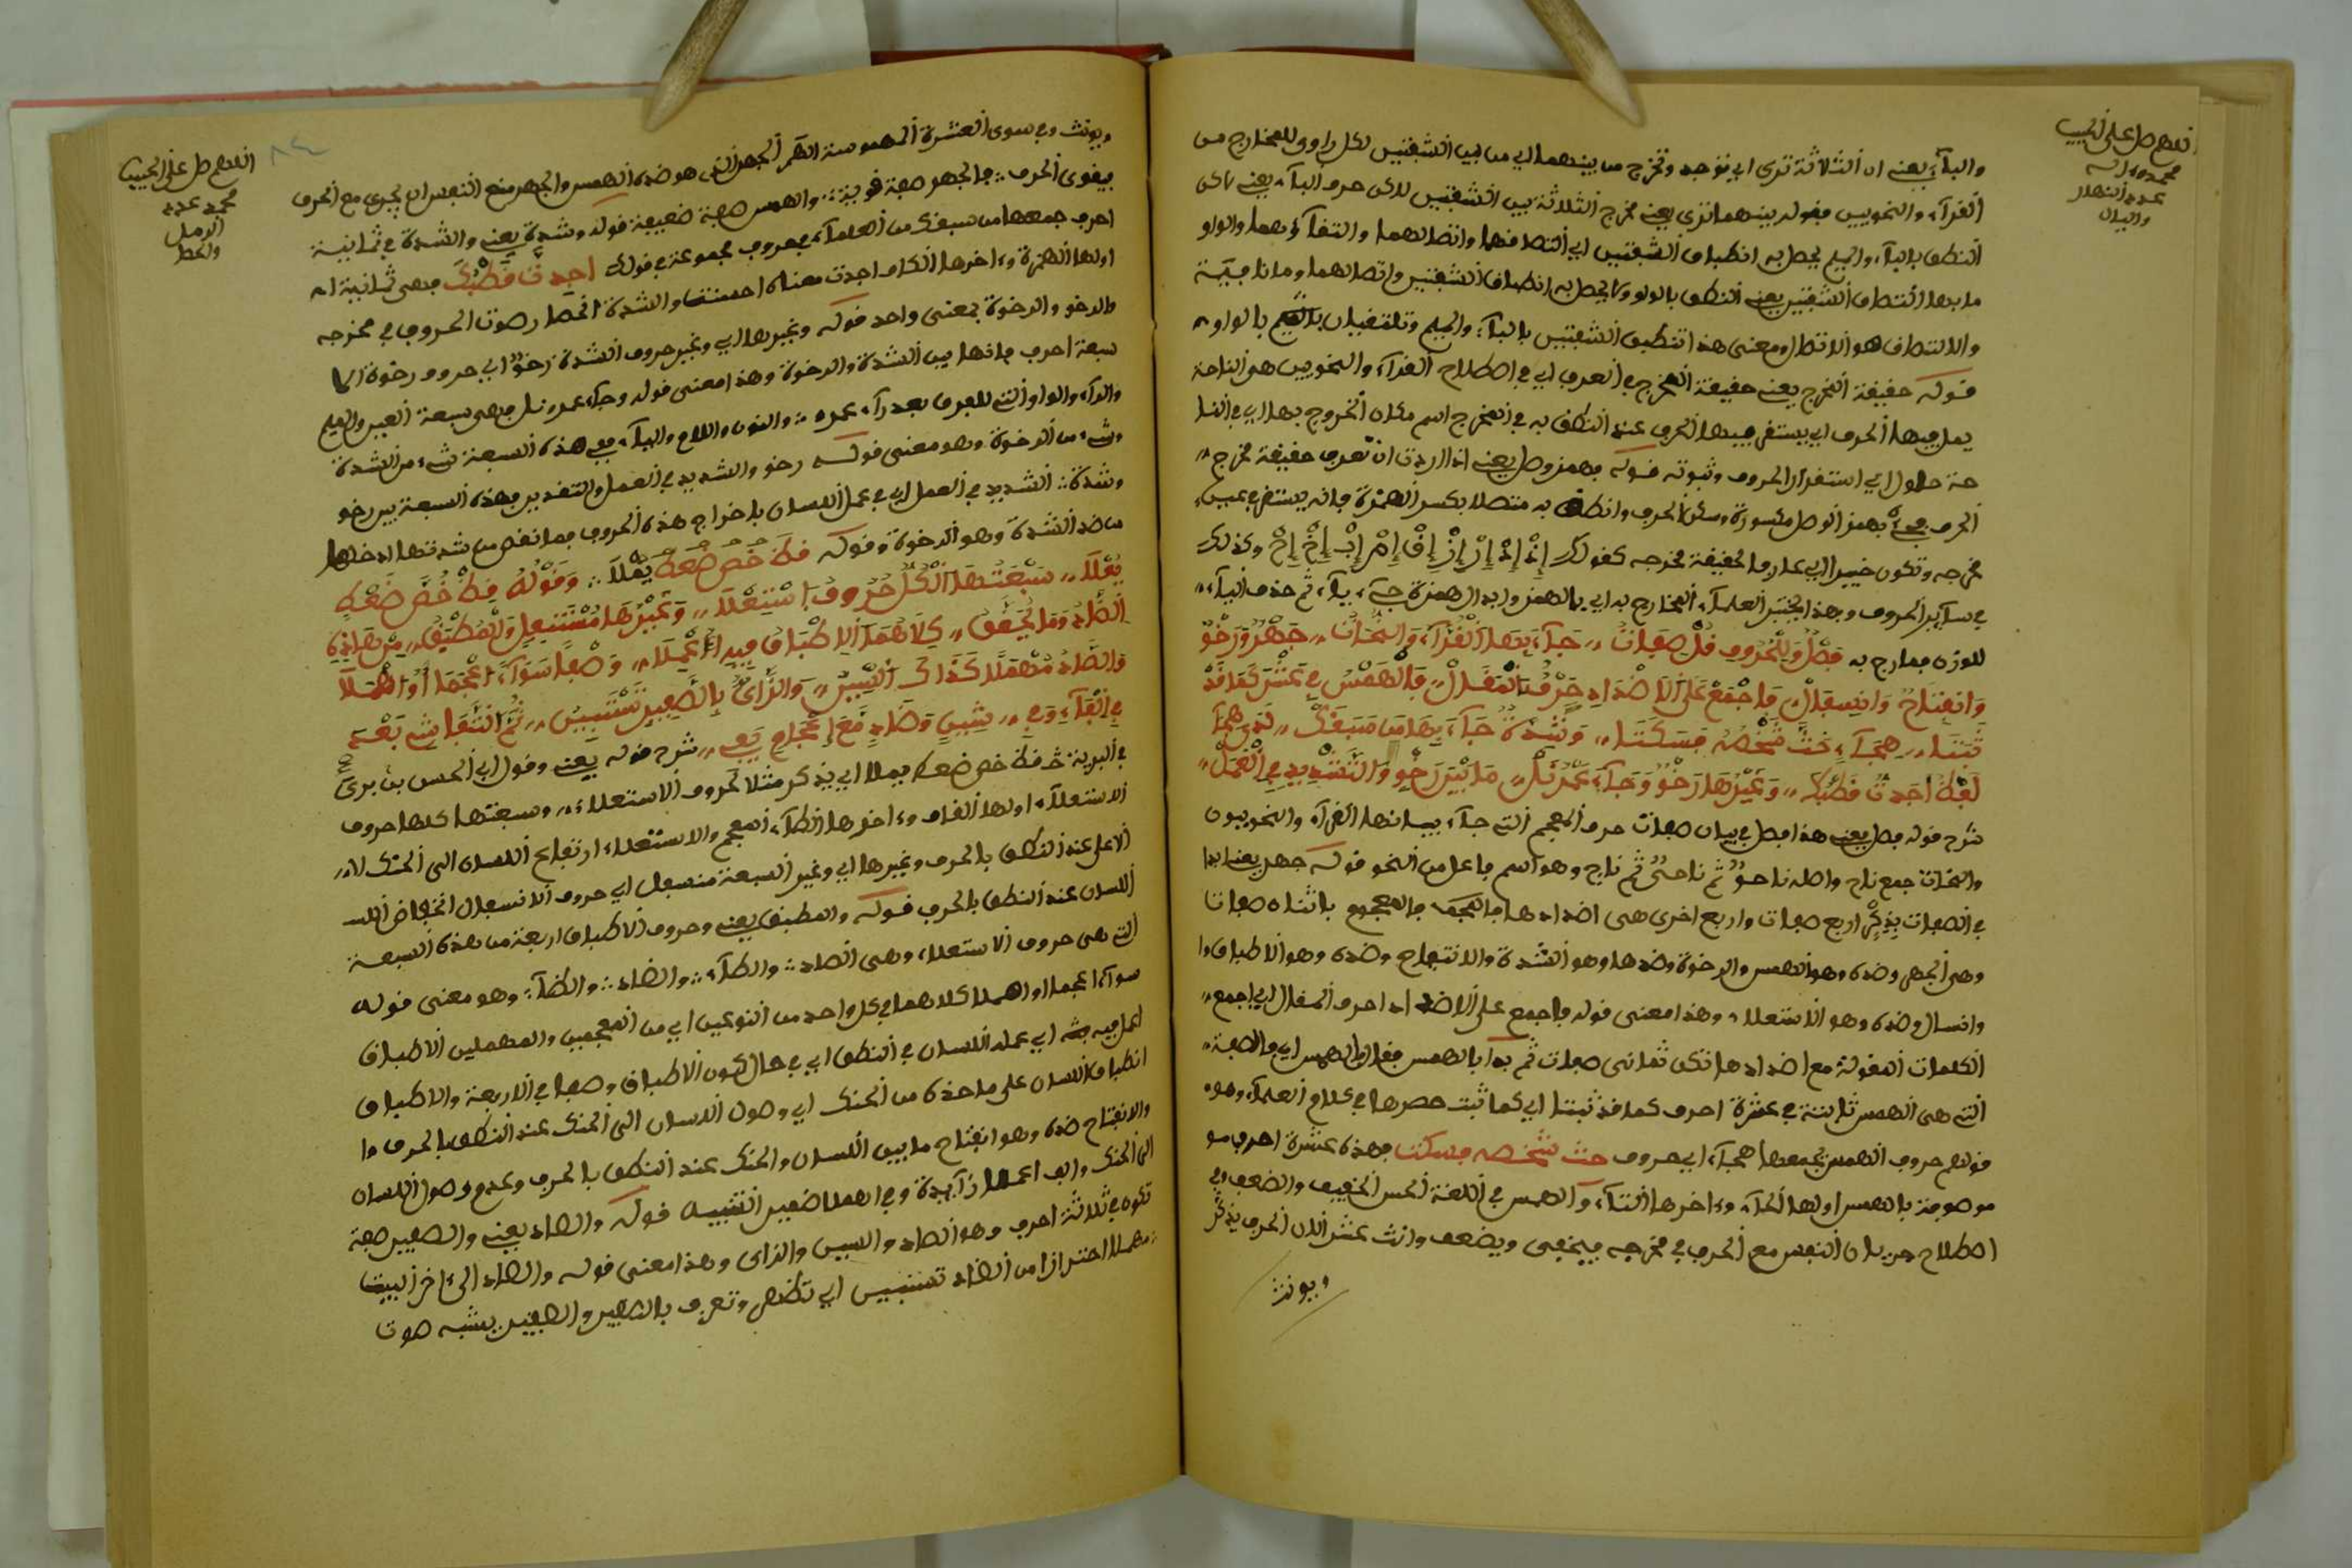 اللهم صل على الحبيب
محمد وءاله
عدد النمل
والبان
والباء يعني ان الثلاثة ترى اي توجد وتخرج من بينهما اي من بين الشفتين لكل راو للمخارج من
القراء والنحويين فقوله بينهما ترى يعني مخرج الثلاثة بين الشفتين لاكن حرف الباء يعني لاكن
النطق بالباء والميم يحصل به انطباق الشفتين اي التصاقهما واتصالهما والتقاؤهما والواو
ما بها التصاق الشفتين يعني النطق بالواو لا يحصل به انطباق الشفتين واتصالهما وما نافية
والالتصاق هو الاتصال ومعنى هذا تنطبق الشفتين بالباء والميم وتلتقيان بالميم بالواو
قوله حقيقة المخرج يعني حقيقة المخرج في العرف اي في اصطلاح القراء والنحويين هي الناحة
يحل فيها الحرف اي يستقر فيها الحرف عند النطق به في المخرج اسم مكان الخروج بها اي في النا
حة حلول اي استقرار الحروف وثبوته قوله بهمز وصل يعني اذا اردت ان تعرف حقيقة مخرج
الحرف فجئ بهمز الوصل مكسورة وسكن الحرف وانطق به متصلا بكسر الهمزة فانه يستقر في عين
مخرجه وتكون خبيرا اي عارفا لحقيقة مخرجه كقولك إذ إد إر إز إق إم إب إخ إح وكذلك
في ساير الحروف وبهذا يختبر العلماء المخارج به اي بالهمز وابدال همزة جيء ياء ثم حذف الياء
للوزن فعارج به فصل وللحروف قل صفات جاء بها القراء والنحات جهر ورخو
وانفتاح وانسفال فاجمع على الاضداد حرف المقال فالهمس في عشر كما قد
ثبتا هجاء حث شخصه فسكتا وشدة جاء بها من سبقك لدى هجا
لفظ اجدت قطبك وغيرها رخو وجاء عمرنل ما بين رخو والتشديد في العمل
شرح قوله فصل يعني هذا فصل في بيان صفات حرف المعجم التي جاء ببيانها القراء والنحويون
والنحات جمع ناح واصله ناحو ثم ناحي ثم ناح وهو اسم فاعل من النحو قوله جهر يعني ابدا
في الصفات بذكر اربع صفات واربع اخرى هي اضدادها فالجمع فالمجموع باثناه صفات
وهي الجهر وضده وهو الهمس والرخوة وضدها وهو الشدة والانفتاح وضده وهو الاطباق وا
وانسال وضده وهو الاستعلاء وهذا معنى قوله فاجمع على الاضداد احرف المقال اي اجمع
الكلمات المقولة مع اضدادها تكن ثماني صفات ثم بدا بالهمس فقال والهمس اي والصفة
التي هي الهمس ثابتة في عشرة احرف كما قد ثبتا اي كما ثبت حصرها في كلام العلماء وهو
قولهم حروف الهمس يجمعها هجاء اي حروف حث شخصه فسكت فهذه عشرة احرف مو
موصوفة بالهمس اولها الحاء وءاخرها التاء والهمس في اللغة الحس الخفيف والضعيف وفي
اصطلاح جريان النفس مع الحرف في مخرجه فيخفى ويضعف وانث عشر لان الحرف يذكر
ويونث
اللهم صل على الحبيب
محمد عدد
الرمل
والحصا
٨٤
ويونث وفي سوى العشرة المهموسة الظهر الجهر الذي هو ضده الهمس والجهر منع النفس ان يجري مع الحرف
فيقوى الحرف فالجهر صفة قوية والهمس صفة ضعيفة قوله وشدة يعني والشدة في ثمانية
احرف جمعها من سبقك من العلماء بحروف مجموعة في قولك اجدت قطبك فهي ثمانية ا
اولها الهمزة وءاخرها الكاف اجدت معناه احسنت والشدة انحصار صوت الحروف في مخرجه
والرخو والرخوة بمعنى واحد قوله وغيرها اي وغير حروف الشدة رخو اي حروف رخوة الا
سبعة احرف فانها بين الشدة والرخوة وهذا معنى قوله وجاء عمرنل فهي سبعة العين والميم
والراء والواو التي للفرق بعد راء عمرو والنون واللام والياء ففي هذه السبعة شيء من الشدة
وشيء من الرخوة وهو معنى قوله رخو والشديد في العمل والتقدير فهذه السبعة بين رخو
وشدة الشديد في العمل اي في عمل اللسان باخراج هذه الحروف فما نقص من شدتها ادخلها
من ضد الشدة وهو الرخوة وقوله قظ خص ضغط يعلا وقوله قظ خص ضغط
يعلا سبعتها الكل حروف استعلا وغيرها مستسفل والمطبق من هاذه
الطاد وما يحقق كلاهما الاطباق فيه اعملا وصفا سواء اعجما او اهملا
والصاد مهملا كذاك السين والزاي بالصفير تستبين ثم التفاشي بعد
في الفاء وفي شين وضاد مع اعجام يفي شرح قوله يعني وقول ابي الحسن بن بري
في البرية خ قظ خص ضغط يعلا اي يذكر مثلا لحروف الاستعلاء وسبعتها كلها حروف
الاستعلاء اولها القاف وءاخرها الظاء المعجم والاستعلاء ارتفاع اللسان الى الحنك الا
الاعلى عند النطق بالحرف وغيرها اي وغير السبعة منسفل اي حروف الانسفال انخفاض اللسا
اللسان عند النطق بالحرف قوله والمطبق يعني وحروف الاطباق اربعة من هذه السبعة
التي هي حروف الاستعلاء وهي الصاد والطاء والضاد والظاء وهو معنى قوله
سواء اعجما او اهملا كلاهما في كل واحد من النوعين اي من المعجمين والمهملين الاطباق
اعمل فيه اي عمله اللسان في النطق اي في حال كون الاطباق وصفا في الاربعة والاطباق
انطباق اللسان على ما حذه من الحنك اي وصول اللسان الى الحنك عند النطق بالحرف وا
والانفتاح ضده وهو انفتاح ما بين اللسان والحنك عند النطق بالحرف وعدم وصول اللسان
الى الحنك والف اعملا زائدة وفي اهملا ضمير التثنية قوله والصاد يعني والصفير صفة
تكون في ثلاثة احرف وهو الصاد والسين والزاي وهذا معنى قوله والصاد الى ءاخر البيت
مهملا احترازا من الضاد تستبين اي تظهر وتعرف بالصفير والصفير يشبه صوت